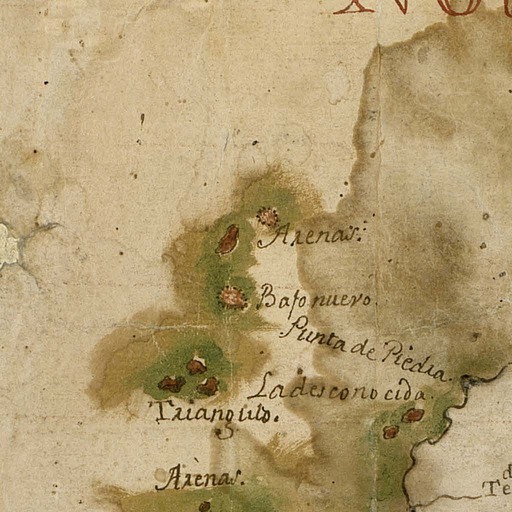 Arenas.
Bajo nuevo.
Punta de Piedra.
La desconocida.
Triangulo.
Arènas.
d
Te